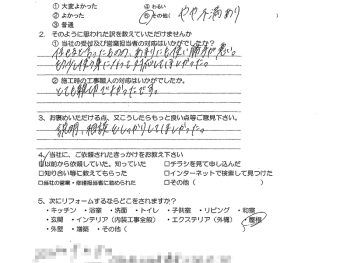 ① 大変よかった　④ わるい
② よかった　⑤ その他( やや不満あり
③ 普通
2. そのように思われた訳を教えていただけませんか
① 当社の受付及び営業担当者の対応はいかがでしたか?
② 施工時の工事職人の対応はいかがでしたか。
とても親切でよかったです。
3. お褒めいただける点、又こうしたらもっと良い点等ご意見下さい。
説明、相談をしっかりしてほしかった。
4. 当社に、ご依頼されたきっかけをお教え下さい
□以前から依頼していた。知っていた　□チラシを見て申し込んだ
□知り合い等に教えてもらった　□インターネットで検索して見つけた
□当社の営業・修理担当者に勧められた　□その他(　)
5. 次にリフォームするならどこをされますか?
・キッチン ・浴室 ・洗面 ・トイレ ・子供室 ・リビング ・和室
・玄関 ・インテリア(内装工事全般) ・エクステリア(外構)
・外壁 ・増築 ・その他(　)